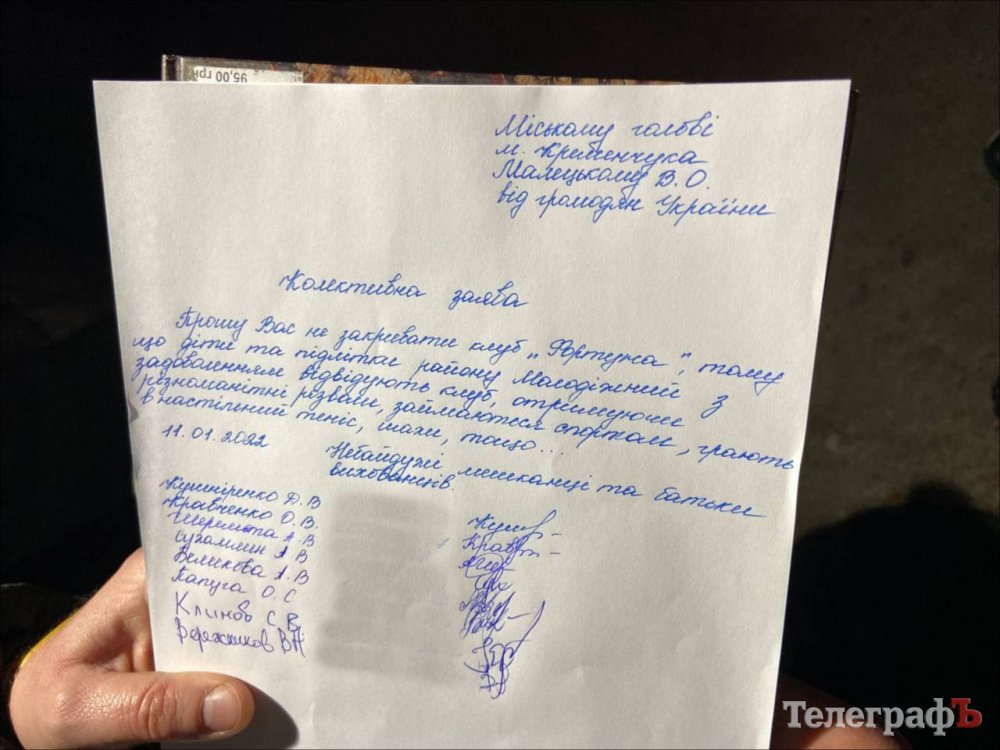 95,00 грн
Міському голові
м. Кременчука
Малецькому В.О.
від громадян України
Колективна заява
Прошу Вас не закривати клуб „Фортуна", тому
що діти та підлітки району Молодіжний з
задоволенням відвідують клуб, отримуючи
різноманітні розваги, займаються спортом, грають
в настільний теніс, шахи, тощо...
11.01.2022
Небайдужі мешканці та батьки
вихованців.
Кушніренко Д.В
Кравченко О.В.
Шеремета А.В
А В
Великова А.В
Папуга О.С
Климов С В
Вережников В
ТелеграфЪ